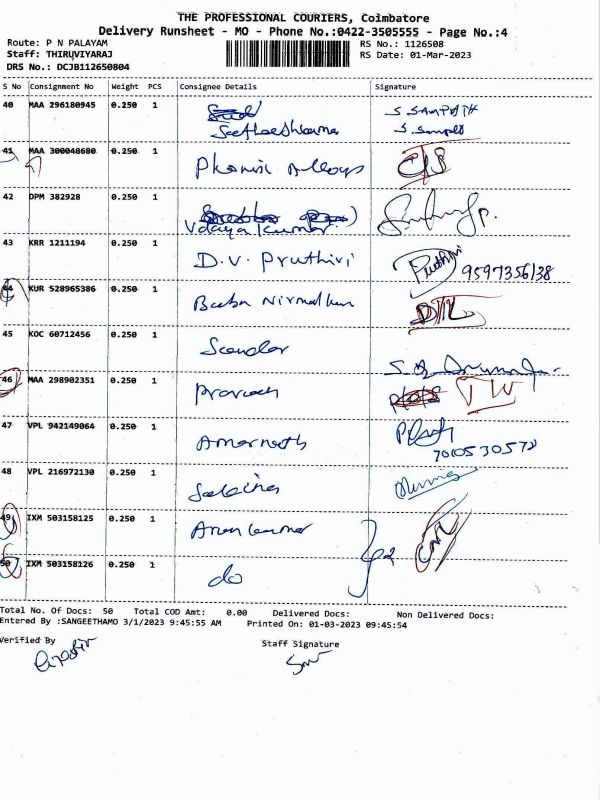 THE PROFESSIONAL COURIERS, Coimbatore
Delivery Runsheet - MO - Phone No.:0422-3505555 - Page No.:4
Route: P N PALAYAM
RS No.: 1126508
Staff: THIRUVIYARAJ
RS Date: 01-Mar-2023
DRS No.: DCJB112650804
S No Consignment No Weight PCS Consignee Details Signature
40 MAA 296180945 0.250 1
S SAMPATH
41 MAA 300048680 0.250 1 Phonix Alloys
42 DPM 382928 0.250 1
Vdaya kumar
43 KRR 1211194 0.250 1 D.V. Pruthivi Pruthivi 9597356138
44 KUR 528965386 0.250 1 Nirmalkum DTL
45 KOC 60712456 0.250 1
46 MAA 298902351 0.250 1
47 VPL 942149064 0.250 1 Amarnath
7010530572
48 VPL 216972130 0.250 1
49 IXM 503158125 0.250 1 Arun kumar
50 IXM 503158126 0.250 1 do
Total No. Of Docs: 50 Total COD Amt: 0.00 Delivered Docs: Non Delivered Docs:
Entered By :SANGEETHAMO 3/1/2023 9:45:55 AM Printed On: 01-03-2023 09:45:54
Verified By Staff Signature